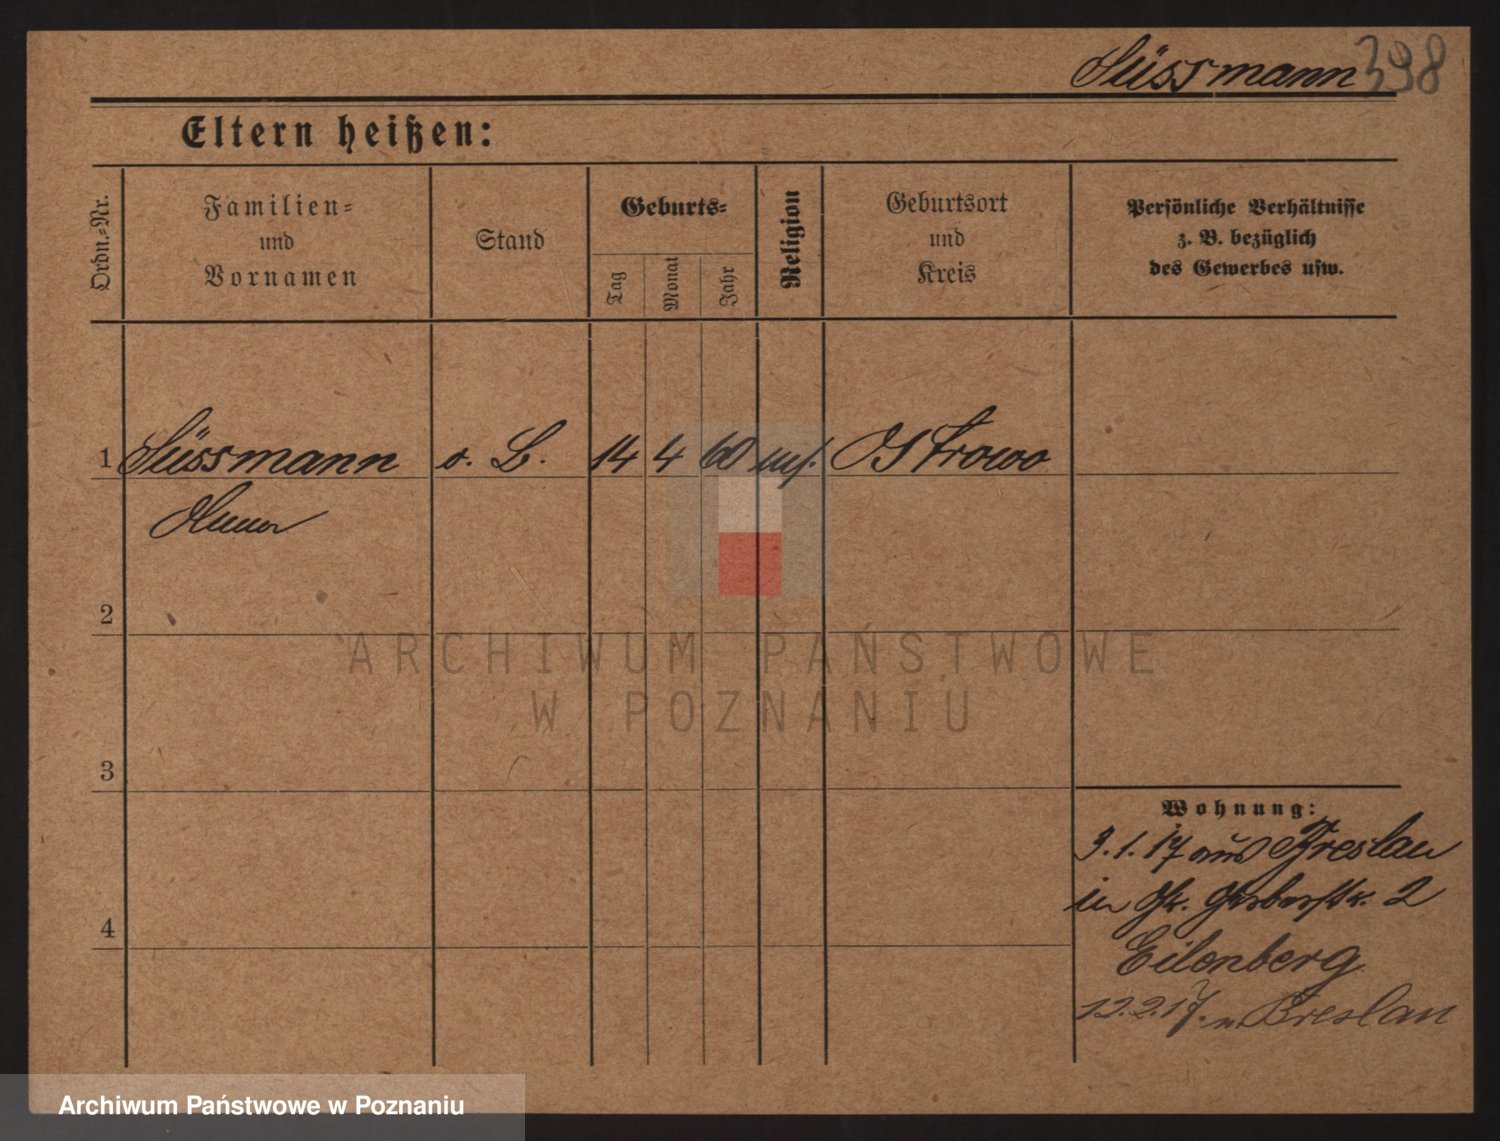 Süssmann 398
Eltern heißen:
Ordn.-Nr.
Familien-
und
Vornamen
Stand
Geburts-
Tag
Monat
Jahr
Religion
Geburtsort
und
Kreis
Persönliche Verhältnisse
z. B. bezüglich
des Gewerbes usw.
1 Süssmann o. B. 14 4 60 Ostrowo
2
3
4
Wohnung:
3.1.17 aus Breslau
in Gr. Gerberstr. 2
Eilenberg
12.2.17. n Breslau
ARCHIWUM PAŃSTWOWE
W POZNANIU
Archiwum Państwowe w Poznaniu